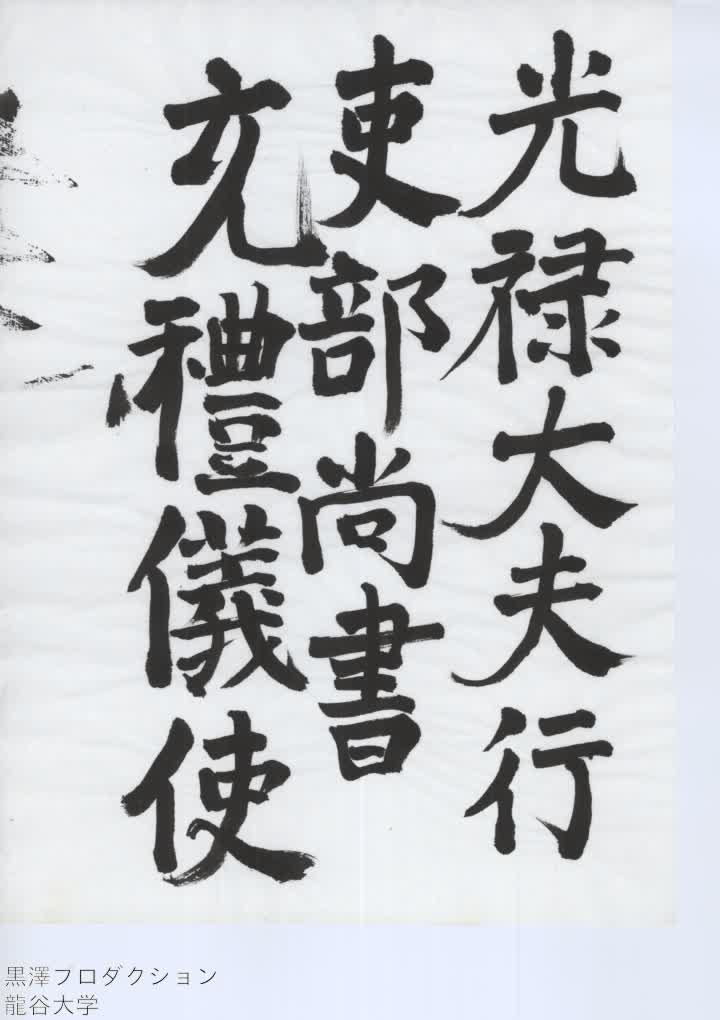 光禄大夫行
吏部尚書
充禮儀使
黒澤プロダクション
龍谷大学